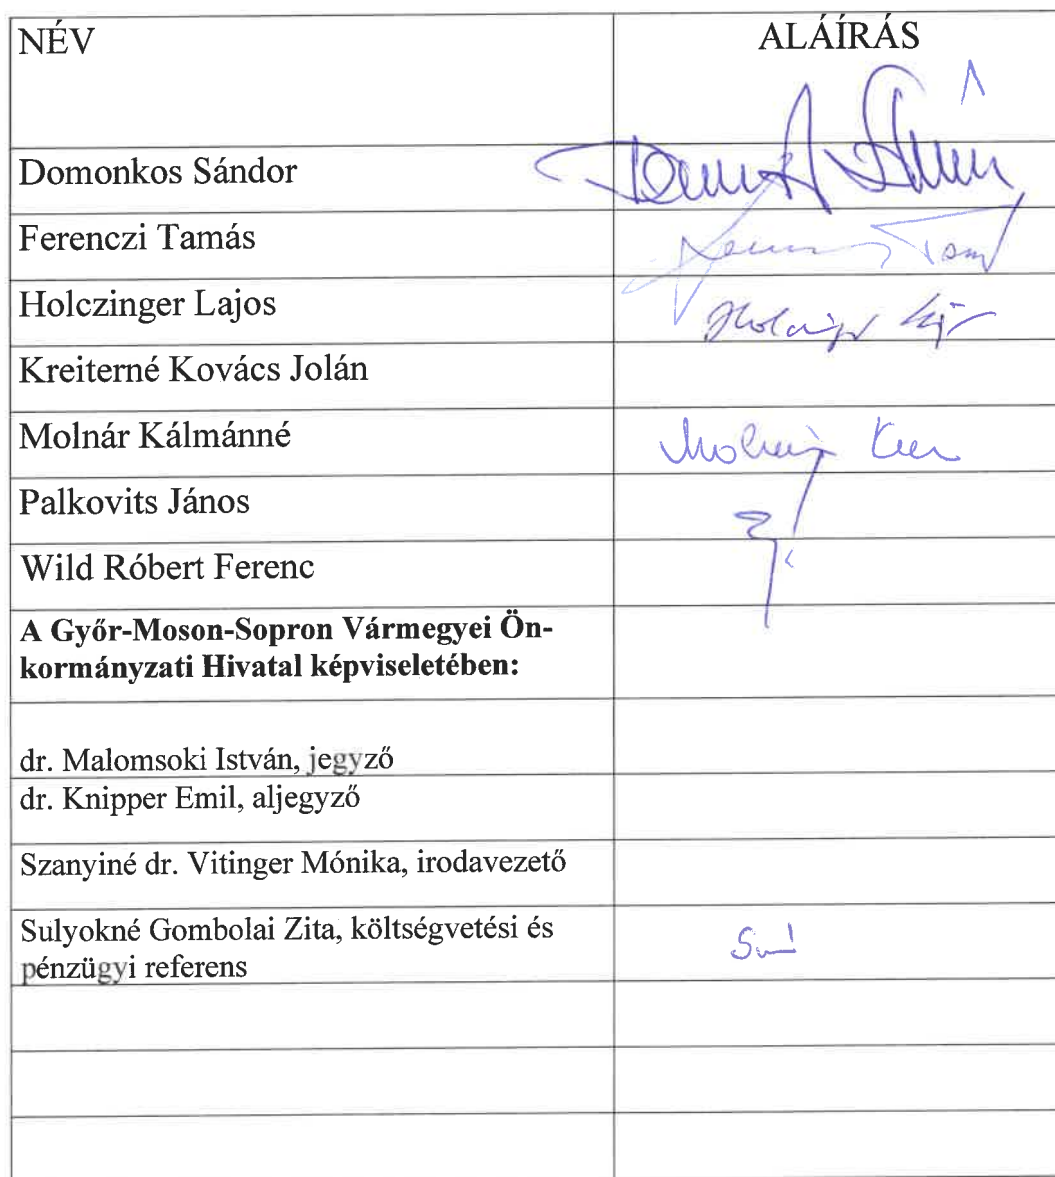 NÉV
ALÁÍRÁS
Domonkos Sándor
Ferenczi Tamás
Holczinger Lajos
Kreiterné Kovács Jolán
Molnár Kálmánné
Palkovits János
Wild Róbert Ferenc
A Győr-Moson-Sopron Vármegyei Ön-
kormányzati Hivatal képviseletében:
dr. Malomsoki István, jegyző
dr. Knipper Emil, aljegyző
Szanyiné dr. Vitinger Mónika, irodavezető
Sulyokné Gombolai Zita, költségvetési és
pénzügyi referens